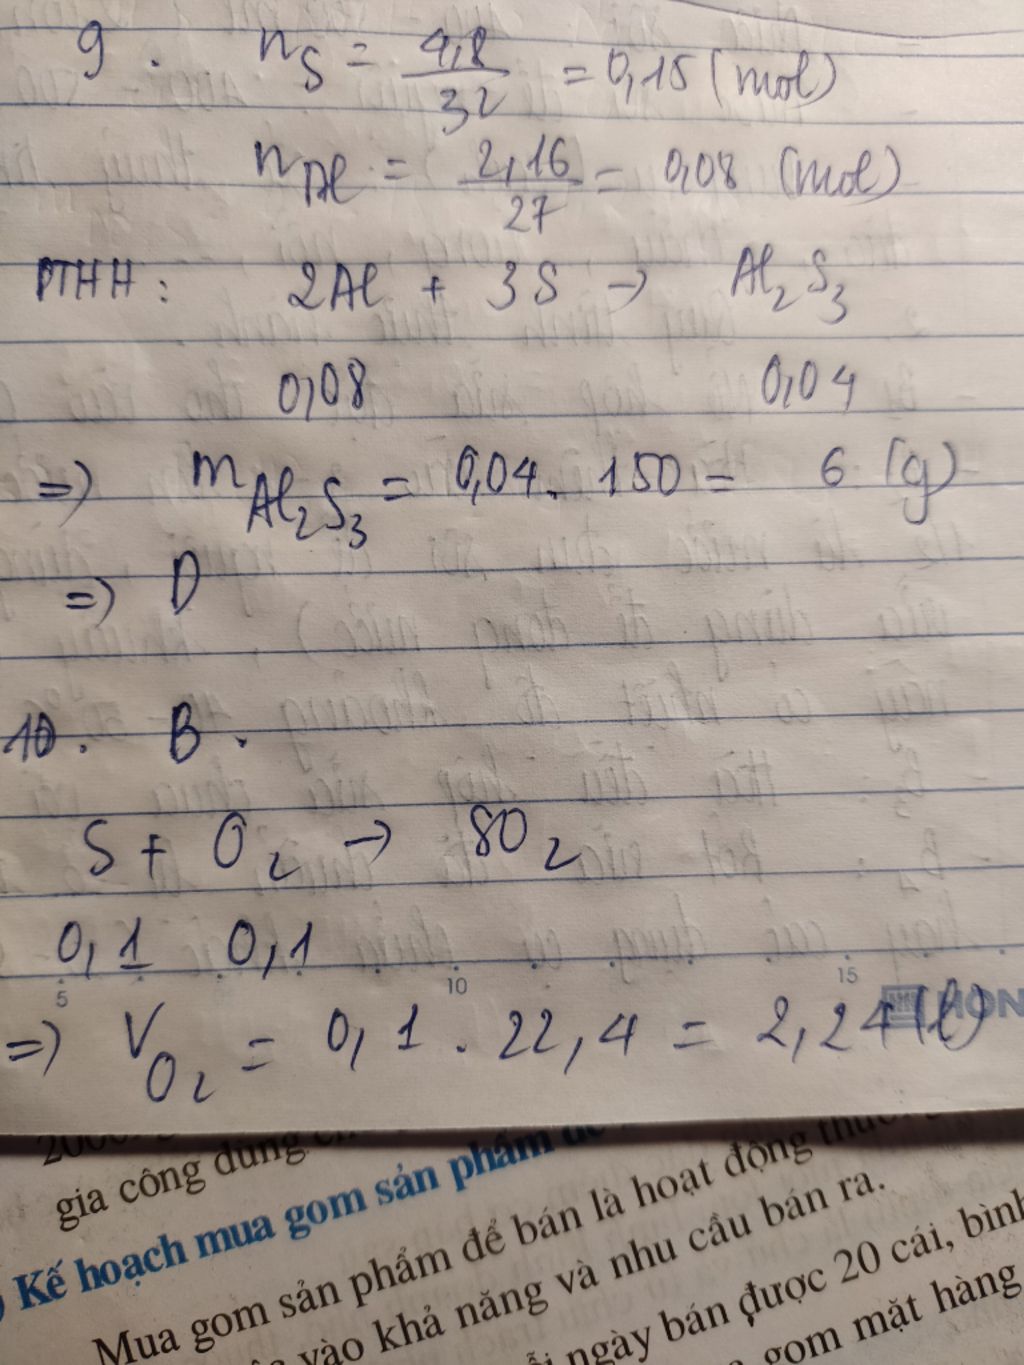 9. n_S = 4,8/32 = 0,15 (mol)
n_Al = 2,16/27 = 0,08 (mol)
PTHH: 2Al + 3S → Al₂S₃
0,08 0,04
=) m_Al₂S₃ = 0,04. 150 = 6 (g)
=) D
10. B.
S + O₂ → SO₂
0,1 0,1
5 10 15
HON
=) V_O₂ = 0,1 . 22,4 = 2,24 (l)
gia công dùng
Kế hoạch mua gom sản phẩm để
Mua gom sản phẩm để bán là hoạt động thườ
vào khả năng và nhu cầu bán ra.
ngày bán được 20 cái, bình
gom mặt hàng